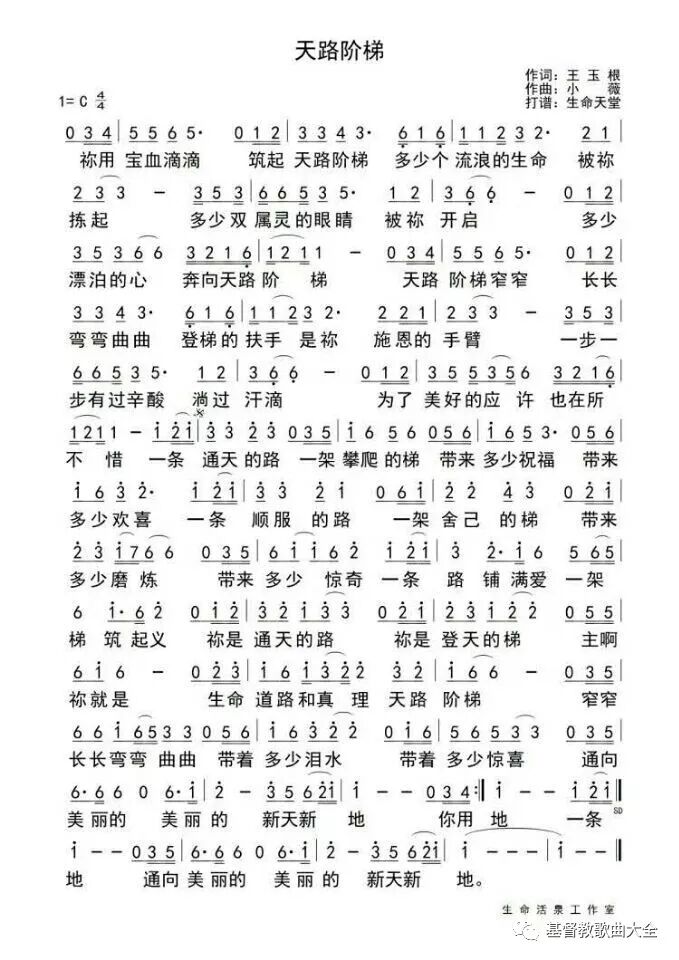 天路阶梯
作词：王 玉 根
1= C 4/4
作曲：小 薇
打谱：生命天堂
0 3 4 | 5 5 6 5· 0 1 2 | 3 3 4 3· 6 1 6 | 1 1 2 3 2· 2 1 |
祢用 宝血滴滴 筑起 天路阶梯 多少个 流浪的生命 被祢
2 3 3 － 3 5 3 | 6 6 5 3 5· 1 2 | 3 6 6 － 0 1 2 |
拣起 多少双 属灵的眼睛 被祢 开启 多少
3 5 3 6 6 3 2 1 6 | 1 2 1 1 － 0 3 4 | 5 5 6 5· 0 1 2 |
漂泊的心 奔向天路阶 梯 天路 阶梯窄窄 长长
3 3 4 3· 6 1 6 | 1 1 2 3 2· 2 2 1 | 2 3 3 － 3 5 3 |
弯弯曲曲 登梯的 扶手 是祢 施恩的 手臂 一步一
6 6 5 3 5· 1 2 | 3 6 6 － 0 1 2 | 3 5 5 3 5 6 3 2 1 6 |
步有过辛酸 淌过 汗滴 为了 美好的应 许 也在所
1 2 1 1 － i 2 i | 3 3 2 3 0 3 5 | i 6 5 6 0 5 6 | i 5 5 3 0 5 6 |
不 惜 一条 通天的路 一架 攀爬的梯 带来 多少祝福 带来
i 6 3 2· i 2 i | 3 i 2 i 0 6 i | 2 2 4 3 0 1 2 |
多少欢喜 一条 顺服 的路 一架 舍己 的梯 带来
2 3 i 7 6 6 0 3 5 | 6 i i 6 2 i 2 i | 3 2· i 6 5 6 5 |
多少磨 炼 带来 多少 惊奇 一条 路 铺 满爱 一架
6 i· 6 2 0 i 2 | 3 2 i 3 3 0 i 2 | 3 2 i 2 2 0 5 5 |
梯 筑 起义 祢是 通天的路 祢是 登天的梯 主啊
6 i 6 － 0 2 3 | 2 i 6 i 3 2 2 3 2 | i 6 6 － 0 3 5 |
祢就是 生命 道路和真 理 天路 阶梯 窄窄
6 6 i 6 5 3 3 0 5 6 | i i 3 2 2 0 i 6 | 5 6 5 3 3 0 3 5 |
长长弯弯 曲曲 带着 多少泪水 带着 多少惊喜 通向
6· 6 6 0 6· i | 2 － 3 5 6 2 i | i － － 0 3 4 :| i － i 2 i |
美丽的 美丽 的 新天新 地 你用 地 一条
SD
i － － 0 3 5 | 6· 6 6 0 6· i | 2 － 3 5 6 2 i | i － － － | i － － － |
地 通向 美丽的 美丽 的 新天新 地。
生 命 活 泉 工 作 室
基督教歌曲大全